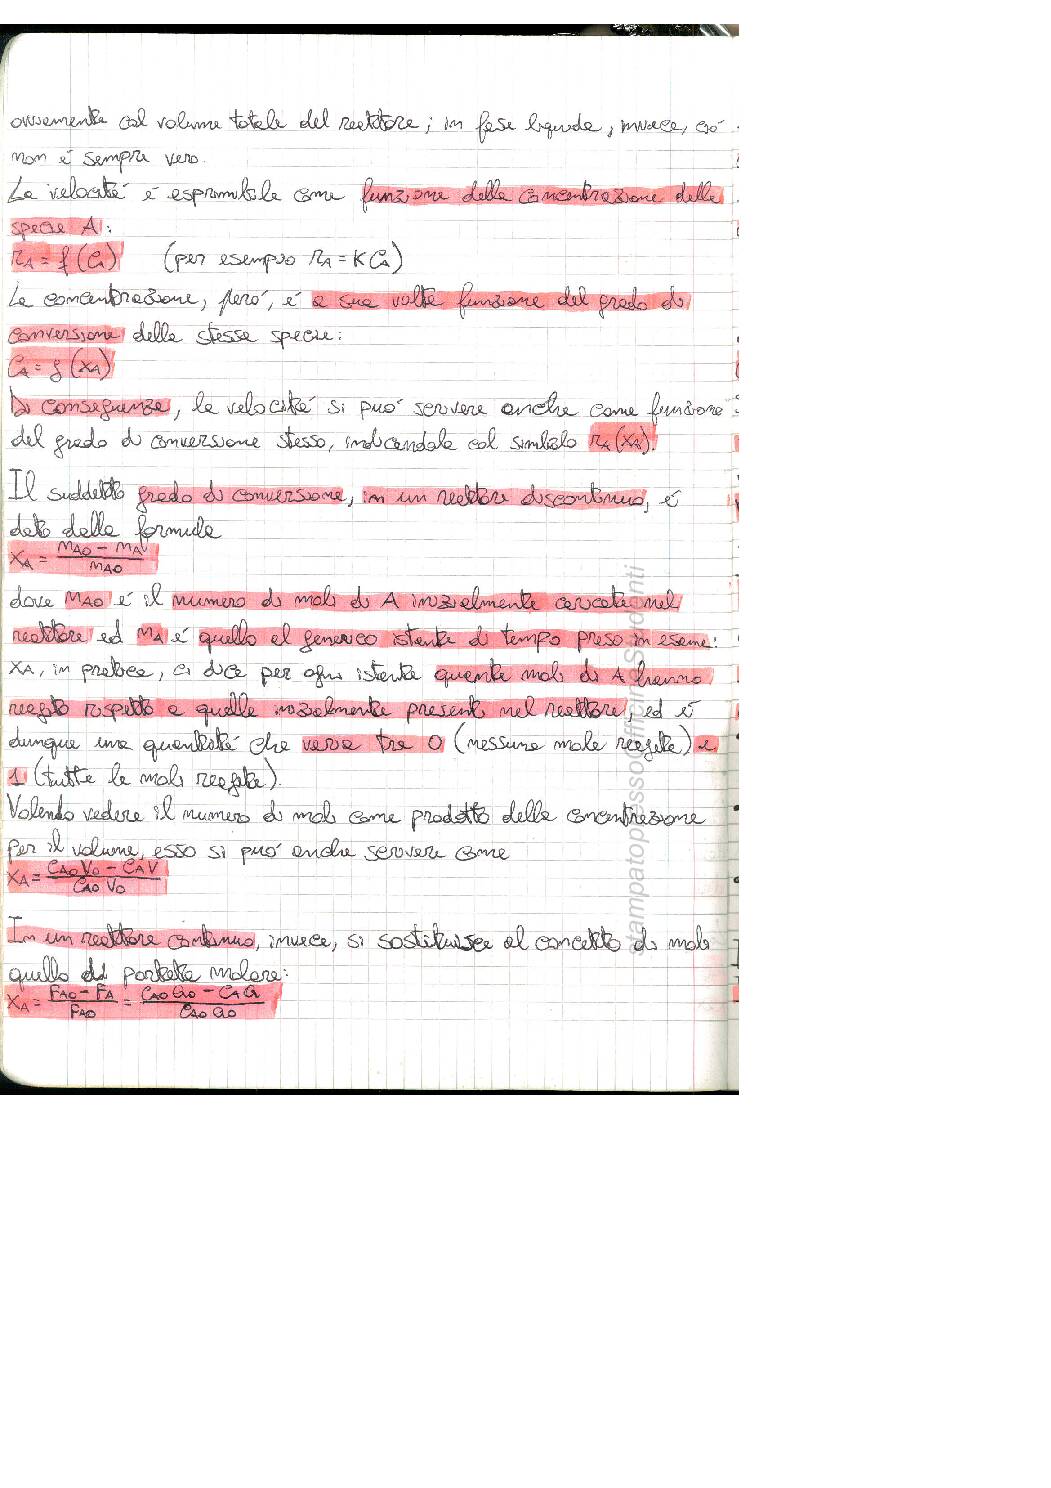 ovviamente col volume totale del reattore; in fase liquida, invece, ciò
non è sempre vero.
La velocità è esprimibile come funzione della concentrazione della
specie A:
rA = f(CA) (per esempio rA = K CA)
La concentrazione, però, è a sua volta funzione del grado di
conversione della stessa specie:
CA = g(XA)
Di conseguenza, la velocità si può scrivere anche come funzione
del grado di conversione stesso, indicandola col simbolo rA(XA).
Il suddetto grado di conversione, in un reattore discontinuo, è
dato dalla formula
XA = (nAO - nA) / nAO
dove nAO è il numero di moli di A inizialmente caricate nel
reattore ed nA è quello al generico istante di tempo preso in esame:
XA, in pratica, ci dice per ogni istante quante moli di A hanno
reagito rispetto a quelle inizialmente presenti nel reattore, ed è
dunque una quantità che varia tra 0 (nessuna mole reagita) e
1 (tutte le moli reagite).
Volendo vedere il numero di moli come prodotto della concentrazione
per il volume, esso si può anche scrivere come
XA = (CAO VO - CA V) / (CAO VO)
In un reattore continuo, invece, si sostituisce al concetto di moli
quello di portata molare:
XA = (FAO - FA) / FAO = (CAO GO - CA G) / (CAO GO)
stampatopressoOfficinaStudenti